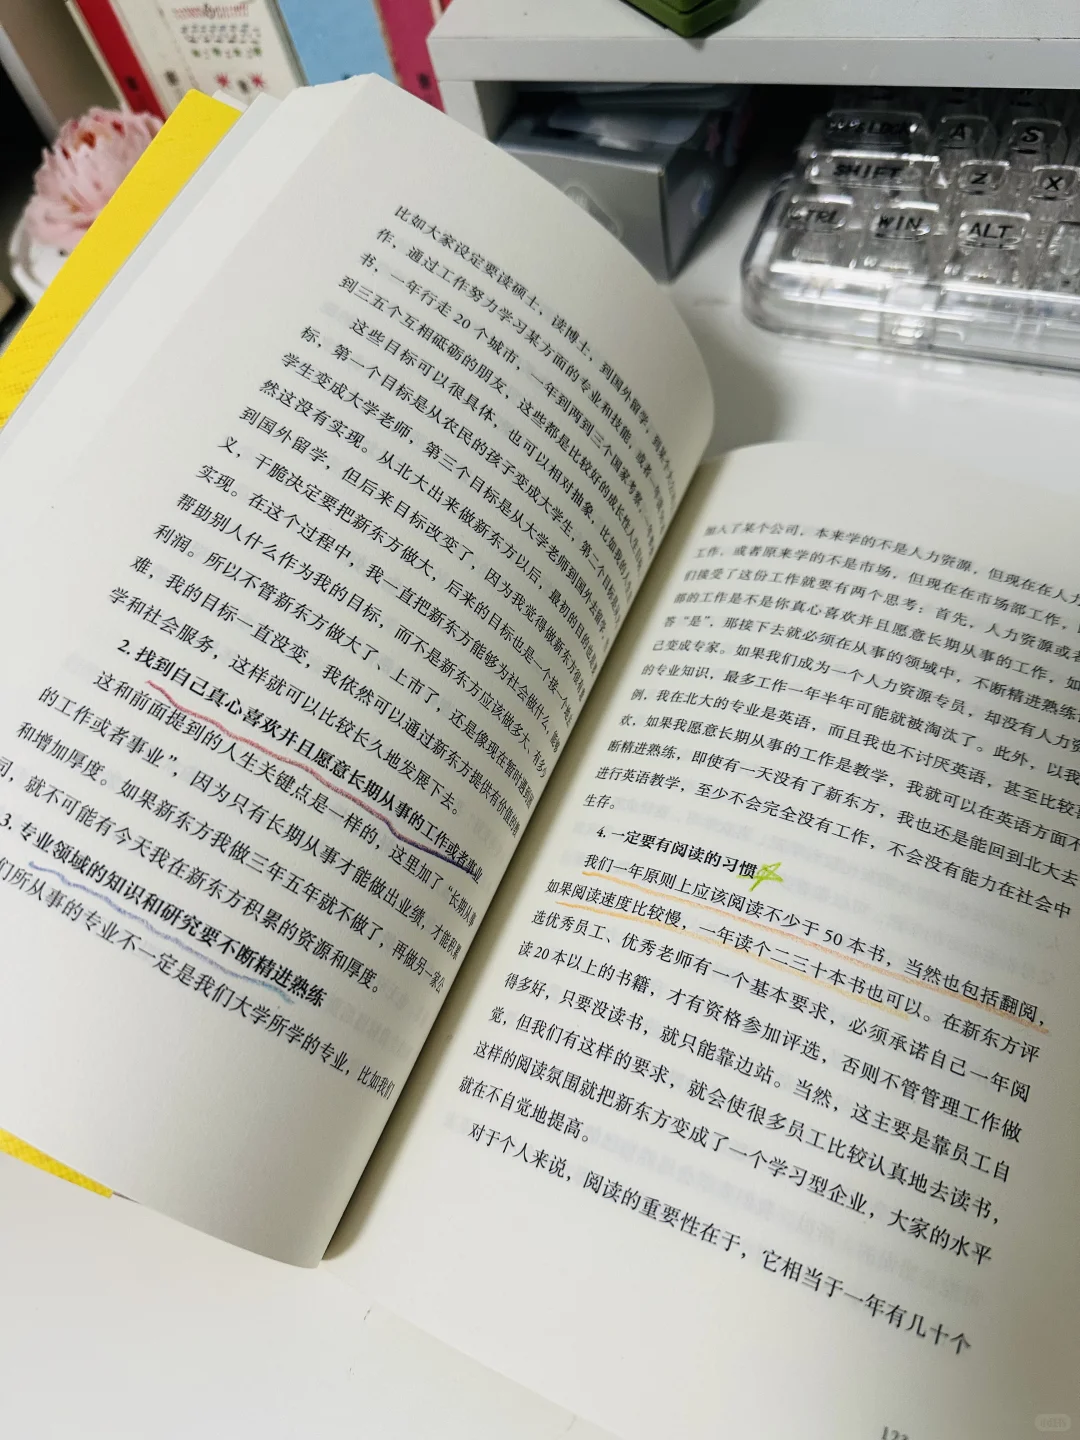 比如大家设定要读硕士、读博士,到国外留学,到某个大公司工
作,通过工作努力学习某方面的专业和技能,或者一年读几十本
书,一年行走 20 个城市,一年到两到三个国家考察,一年
到三五个互相砥砺的朋友,这些都是比较好的成长性人生目标。
这些目标可以很具体,也可以相对抽象,比如我的人生目
标,第一个目标是从农民的孩子变成大学生,第二个目标是从
学生变成大学老师,第三个目标是从大学老师到国外去留学,
然这没有实现。从北大出来做新东方以后,最初的目的也是
到国外留学,但后来目标改变了,因为我觉得做新东方很有意
义,干脆决定要把新东方做大,后来的目标也是一个接一个地去
实现。在这个过程中,我一直把新东方能够为社会做什么、能够
帮助别人什么作为我的目标,而不是新东方应该做多大、有多少
利润。所以不管新东方做大了、上市了,还是像现在暂时遇到困
难,我的目标一直没变,我依然可以通过新东方提供有价值的教
学和社会服务,这样就可以比较长久地发展下去。
2. 找到自己真心喜欢并且愿意长期从事的工作或者事业
这和前面提到的人生关键点是一样的,这里加了“长期从事
的工作或者事业”,因为只有长期从事才能做出业绩,才能积累
和增加厚度。如果新东方我做三年五年就不做了,再做另一家公
司,就不可能有今天我在新东方积累的资源和厚度。
3. 专业领域的知识和研究要不断精进熟练
们所从事的专业不一定是我们大学所学的专业,比如我们
加入了某个公司,本来学的不是人力资源,但现在在人力
工作,或者原来学的不是市场,但现在在市场部工作,
们接受了这份工作就要有两个思考:首先,人力资源或者
部的工作是不是你真心喜欢并且愿意长期从事的工作,如
答“是”,那接下去就必须在从事的领域中,不断精进熟练
己变成专家。如果我们成为一个人力资源专员,却没有人力资
的专业知识,最多工作一年半年可能就被淘汰了。此外,以我
例,我在北大的专业是英语,而且我也不讨厌英语,甚至比较喜
欢,如果我愿意长期从事的工作是教学,我就可以在英语方面不
断精进熟练,即使有一天没有了新东方,我也还是能回到北大去
进行英语教学,至少不会完全没有工作,不会没有能力在社会中
生存。
4. 一定要有阅读的习惯
我们一年原则上应该阅读不少于 50 本书,当然也包括翻阅,
如果阅读速度比较慢,一年读个二三十本书也可以。在新东方评
选优秀员工、优秀老师有一个基本要求,必须承诺自己一年阅
读 20 本以上的书籍,才有资格参加评选,否则不管管理工作做
得多好,只要没读书,就只能靠边站。当然,这主要是靠员工自
觉,但我们有这样的要求,就会使很多员工比较认真地去读书,
这样的阅读氛围就把新东方变成了一个学习型企业,大家的水平
就在不自觉地提高。
对于个人来说,阅读的重要性在于,它相当于一年有几十个
A
S
SHIFT
Z
X
CTRL
WIN
ALT